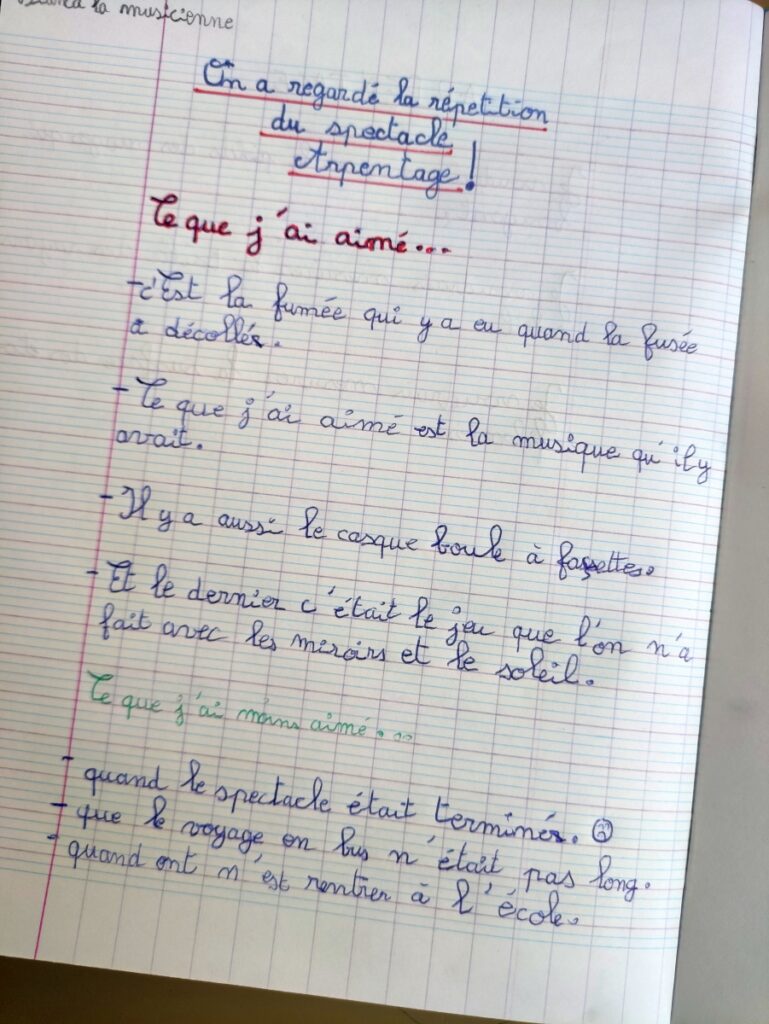 la musicienne
On a regardé la répetition
du spectacle
Arpentage !
Ce que j'ai aimé...
-c'Est la fumée qui y a eu quand la fusée
a décollér.
- Ce que j'ai aimé est la musique qu'il y
avait.
- Il y a aussi le casque boule à fassettes.
- Et le dernier c'était le jeu que l'on n'a
fait avec les miroirs et le soleil.
Ce que j'ai moins aimé...
- quand le spectacle était terminér.
- que le voyage en bus n'était pas long.
- quand ont n'est rentrer à l'école.